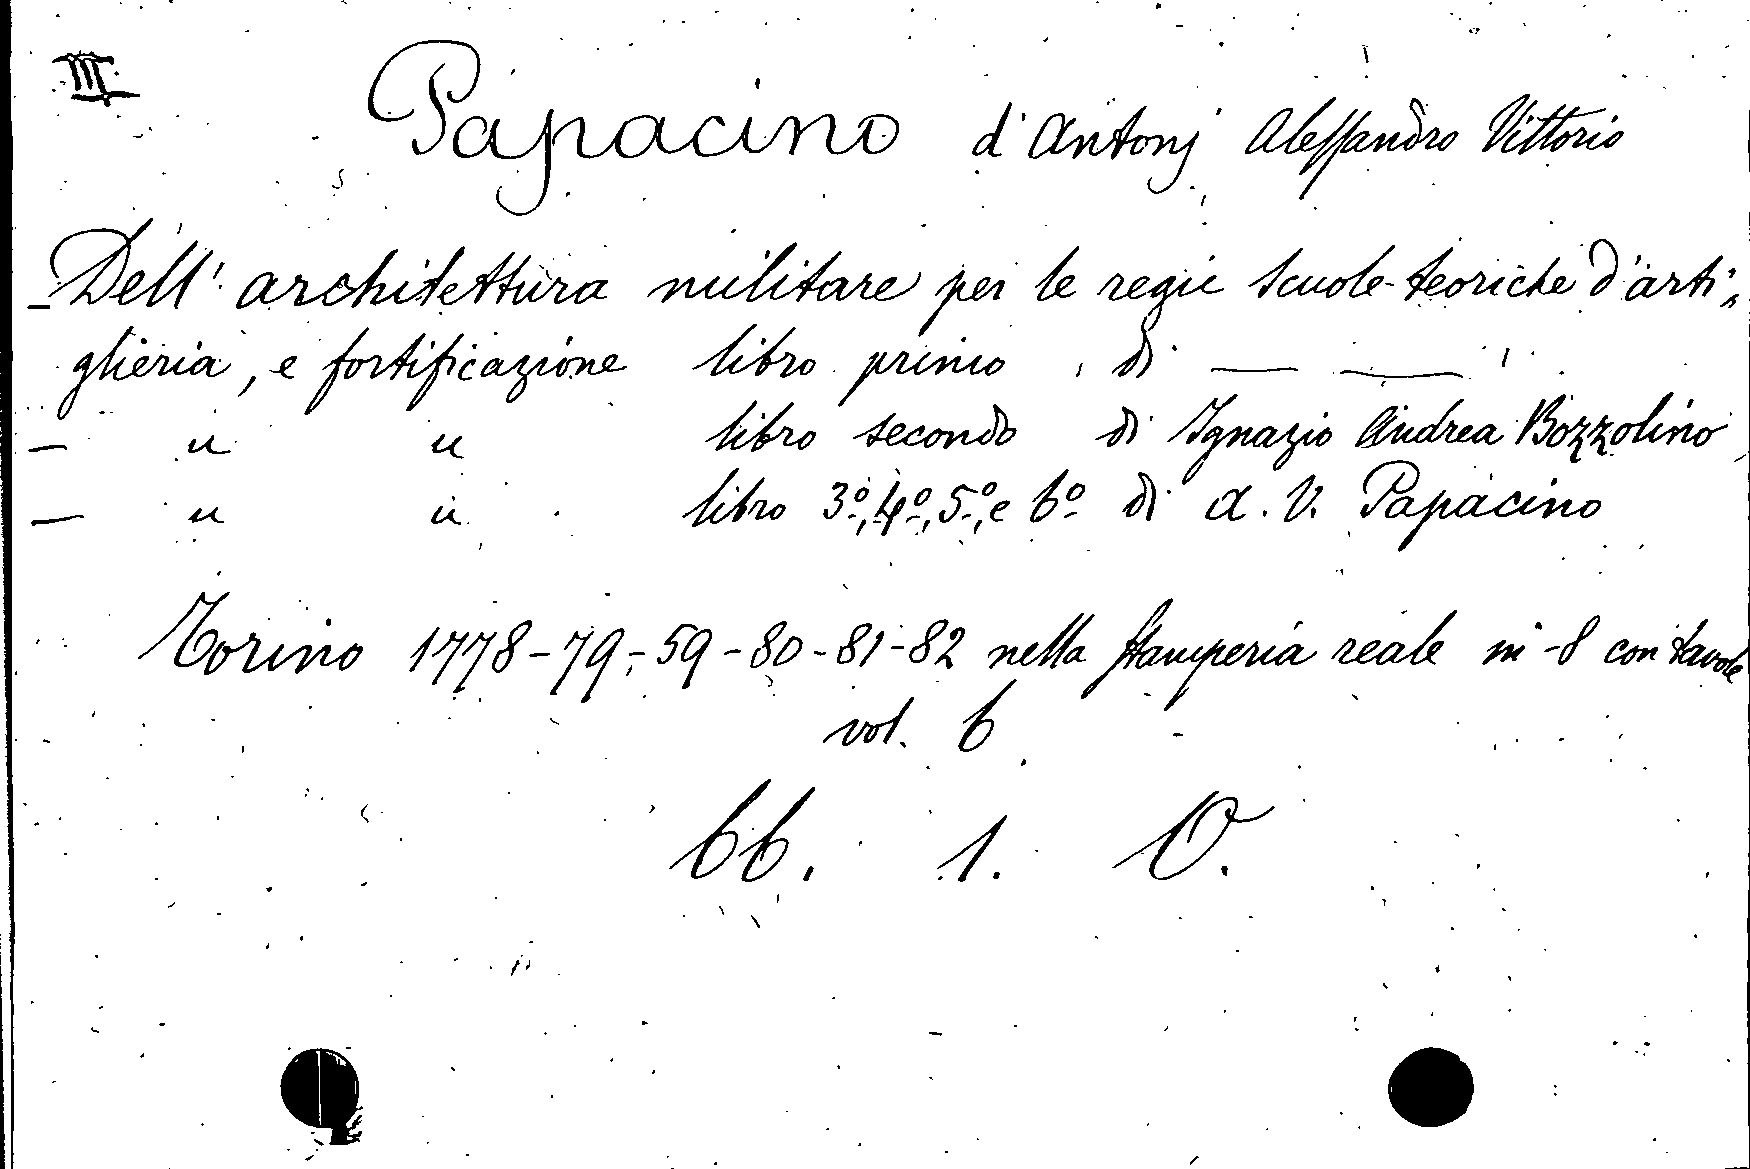 III
Papacino d'Antonj Alessandro Vittorio
- Dell' architettura militare per le regie scuole teoriche d'arti"
glieria, e fortificazione libro primo, di — —
— " " libro secondo di Ignazio Andrea Bozzolino
— " " libro 3º, 4º, 5º, e 6º di A. V. Papacino
Torino 1778-79-59-80-81-82 nella stamperia reale in-8 con tavole
vol. 6
66. 1. O.